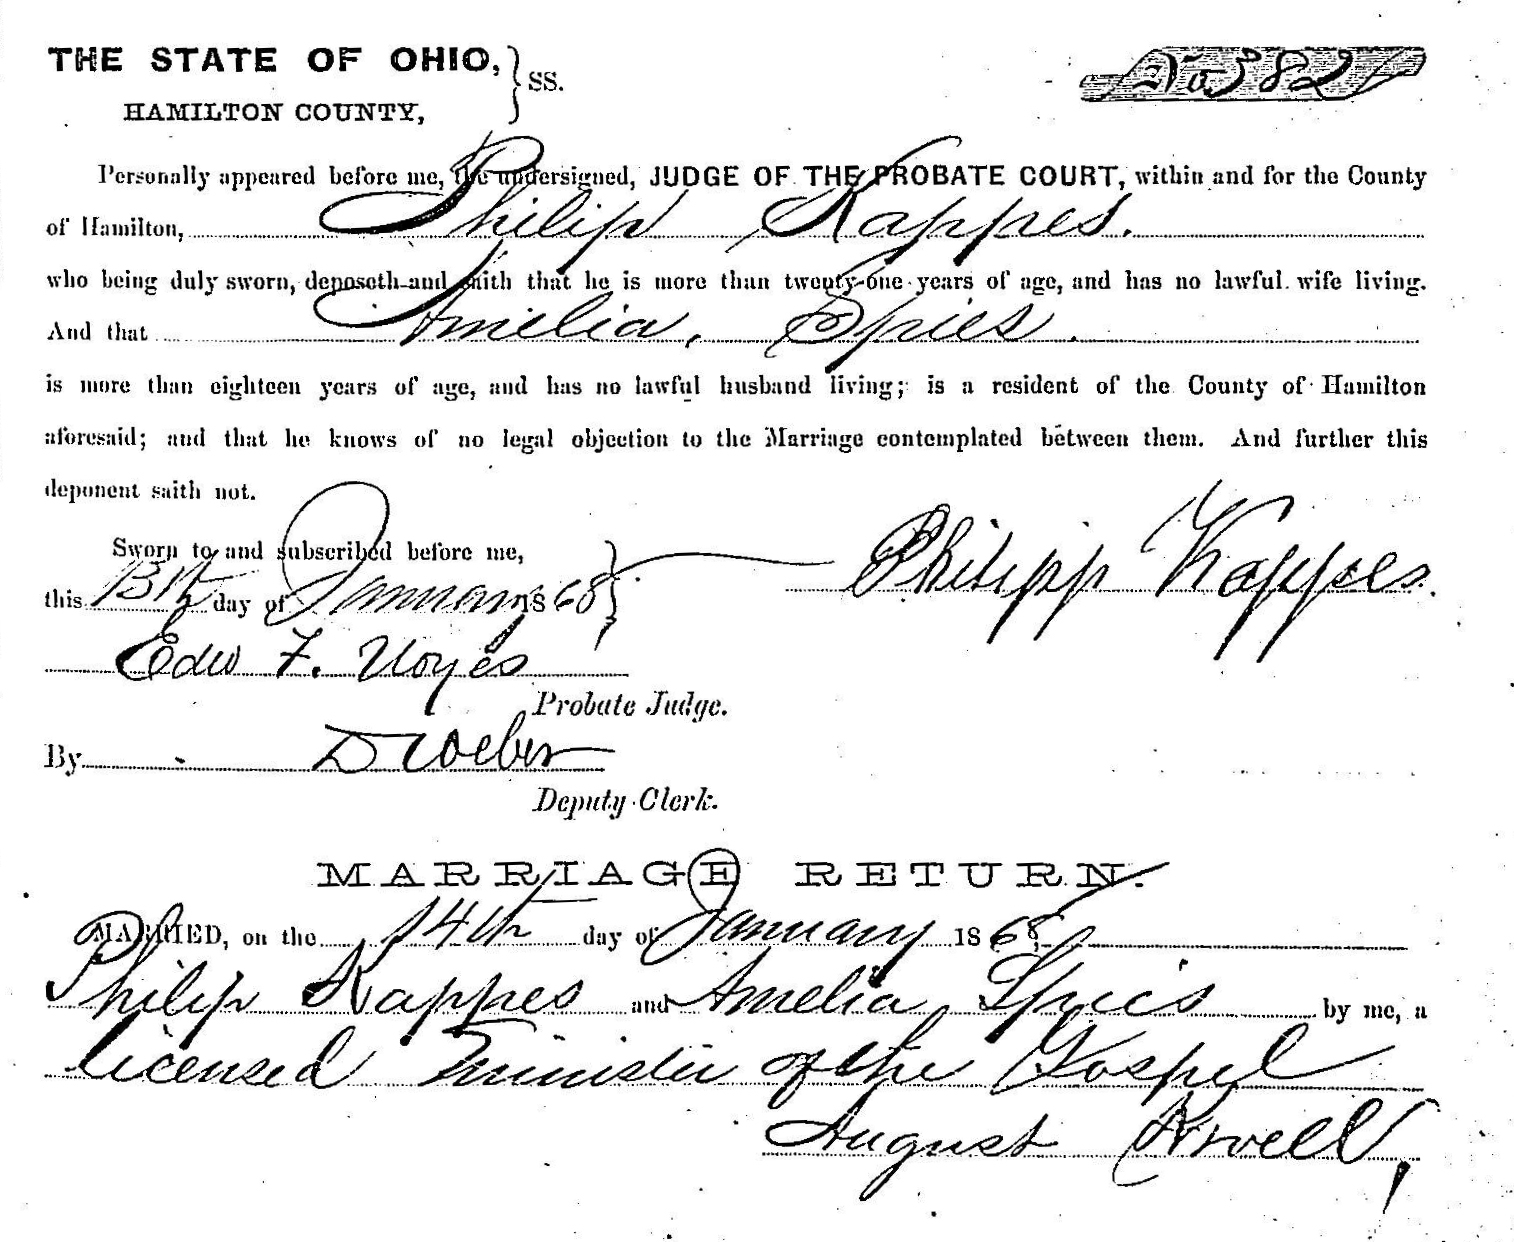 THE STATE OF OHIO, } SS.
No 382
HAMILTON COUNTY,
Personally appeared before me, the undersigned, JUDGE OF THE PROBATE COURT, within and for the County
of Hamilton, Philip Kappes.
who being duly sworn, deposeth and saith that he is more than twenty-one years of age, and has no lawful wife living.
And that Amelia, Spies.
is more than eighteen years of age, and has no lawful husband living; is a resident of the County of Hamilton
aforesaid; and that he knows of no legal objection to the Marriage contemplated between them. And further this
deponent saith not.
Sworn to and subscribed before me,
this 13th day of January 1868 } Philipp Kappes.
Edw F. Noyes
Probate Judge.
By D Weber
Deputy Clerk.
MARRIAGE RETURN.
MARRIED, on the 14th day of January 1868,
Philip Kappes and Amelia Spies by me, a
licensed Minister of the Gospel
August